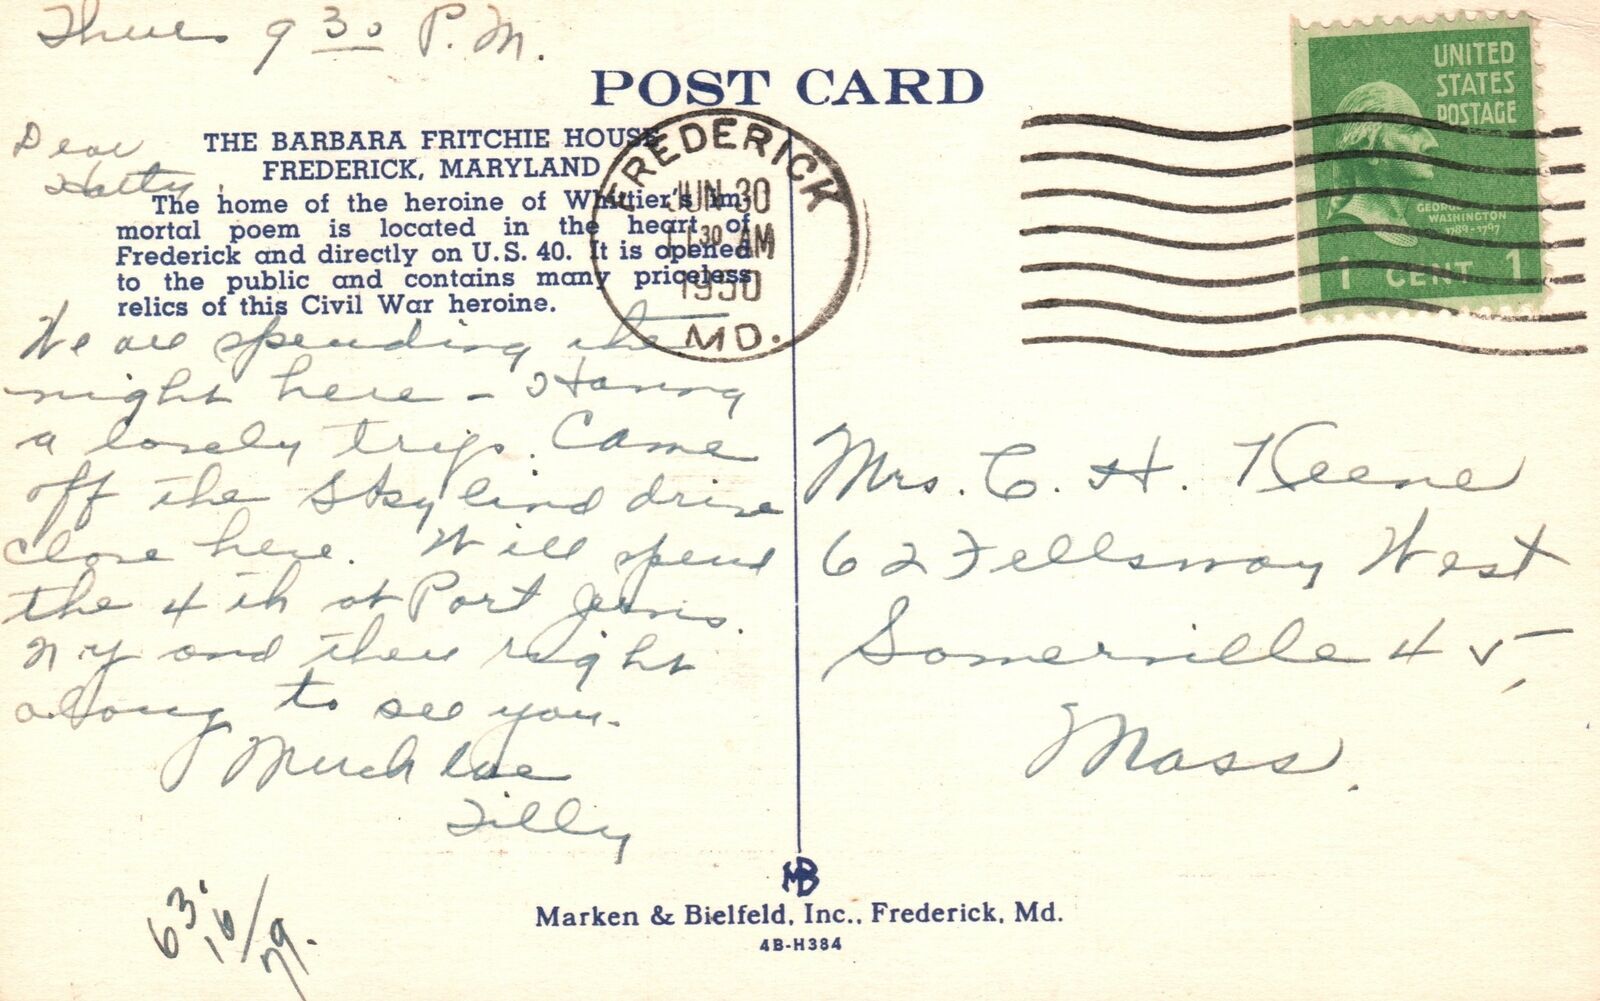 Thurs 9 30 P.M.
POST CARD
UNITED
STATES
POSTAGE
GEORGE
WASHINGTON
1789-1797
1 CENT 1
FREDERICK
JUN 30
11 30 AM
1950
MD.
Dear
Hatty,
THE BARBARA FRITCHIE HOUSE
FREDERICK, MARYLAND
The home of the heroine of Whittier's im-
mortal poem is located in the heart of
Frederick and directly on U.S. 40. It is opened
to the public and contains many priceless
relics of this Civil War heroine.
We are spending the
night here - Having
a lovely trip. Came
off the Sky line drive
close here. Will spend
the 4th at Port Jervis.
N Y and then right
along to see you.
Much love
Tilly
Mrs. C. H. Keene
62 Fellsway West
Somerville 45,
Mass.
63.
10/79.
MB
Marken & Bielfeld, Inc., Frederick, Md.
4B-H384